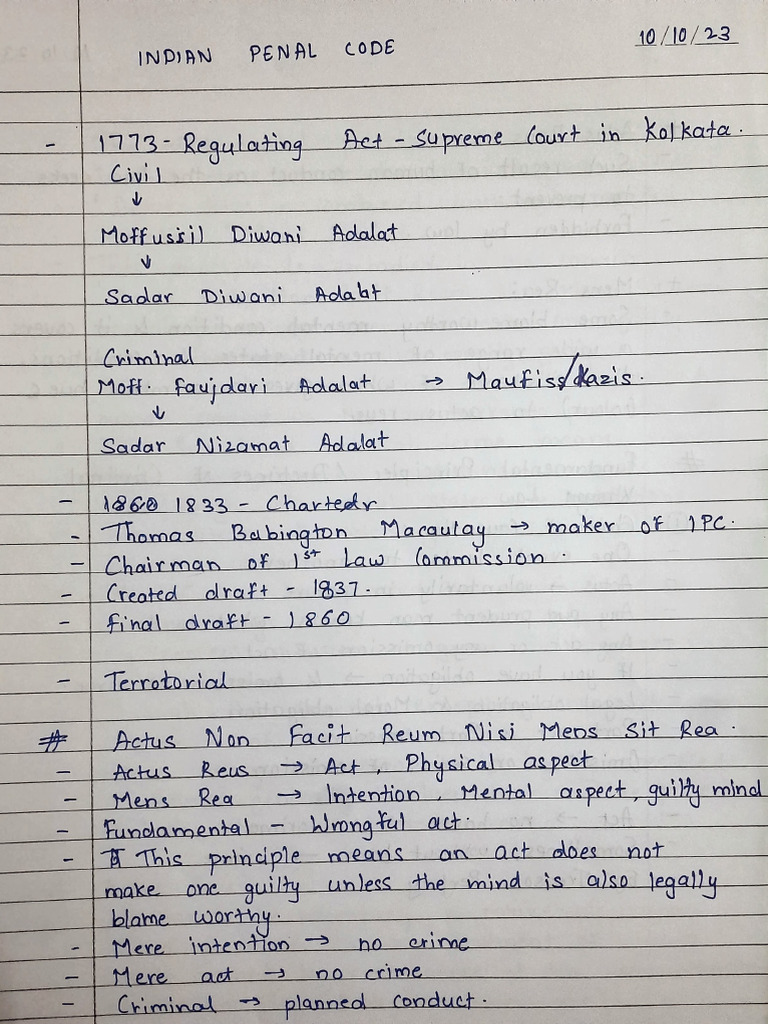 10/10/23
INDIAN PENAL CODE
- 1773 - Regulating Act - Supreme Court in Kolkata.
Civil
↓
Moffussil Diwani Adalat
↓
Sadar Diwani Adalat
Criminal
Moff. Faujdari Adalat → Maufiss/Kazis.
↓
Sadar Nizamat Adalat
- 1860 1833 - Chartedr
- Thomas Babington Macaulay → maker of IPC.
- Chairman of 1st Law Commission.
- Created draft - 1837.
- Final draft - 1860
- Terrotorial
# Actus Non Facit Reum Nisi Mens Sit Rea.
- Actus Reus → Act, Physical aspect
- Mens Rea → Intention, Mental aspect, guilty mind
- Fundamental - Wrongful act.
- This principle means an act does not
make one guilty unless the mind is also legally
blame worthy.
- Mere intention → no crime
- Mere act → no crime
- Criminal → planned conduct.